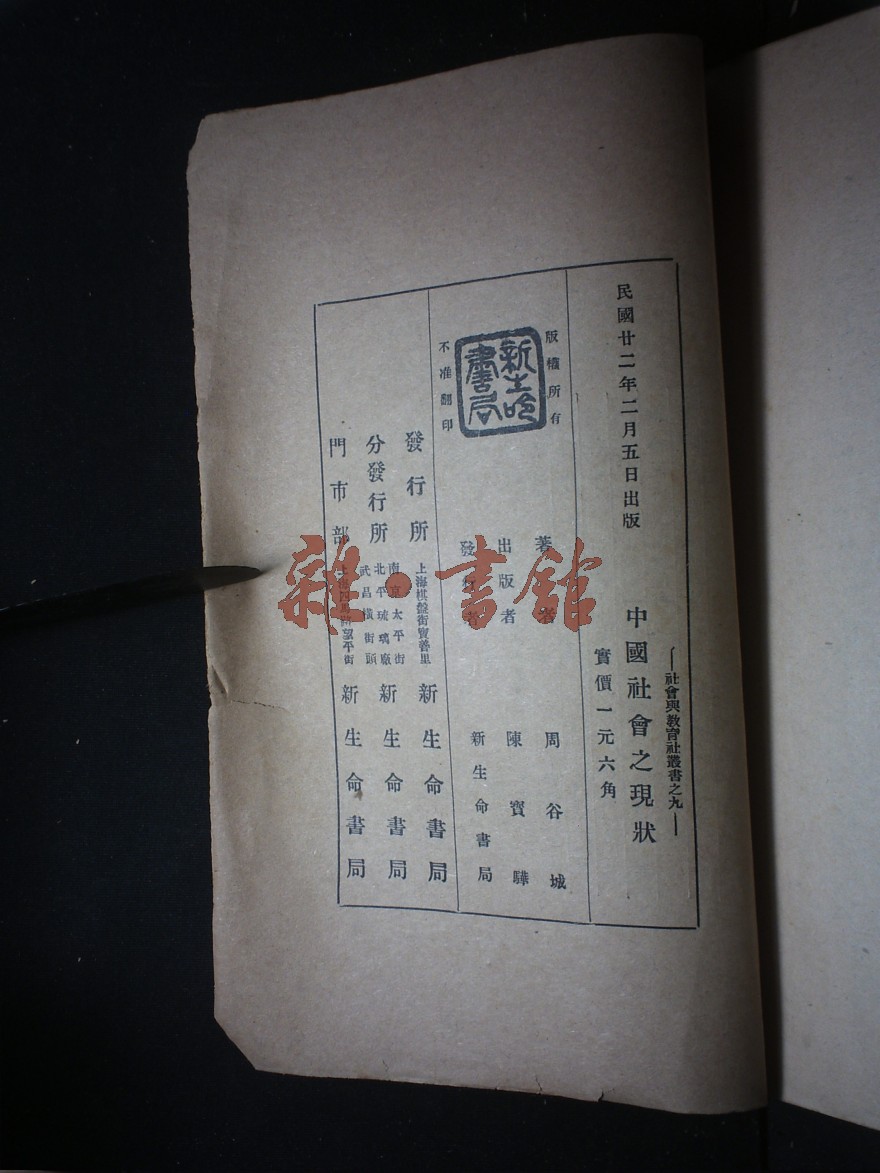 民國廿二年二月五日出版
社會與教育社叢書之九
中國社會之現狀
實價一元六角
版權所有
新生命書局
不准翻印
著作者 周谷城
出版者 陳寶驊
發行者 新生命書局
發行所 上海棋盤街寶善里 新生命書局
分發行所 南京太平街 北平琉璃廠 武昌橫街頭 新生命書局
門市部 上海四馬路望平街 新生命書局
雜·書館